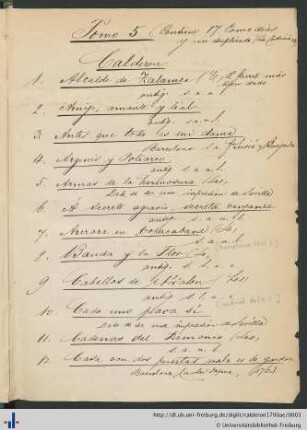 Tomo 5 (Contiene 17 Comedias
y un duplicado
Calderon
1. Alcalde de Zalamea
antig. s. a. l.
2. Amigo, amante y leal
antig. s. a. l.
3. Antes que todo es mi dama
Barcelona
4. Argenis y Poliarco
s. a. n. l.
5. Armas de la hermosura (Las,
Debe de ser una impresión de Sevilla
6. A secreto agravio, secreta venganza
antig. s. a. n. l.
7. Aurora en Copacabana (La,
s. a. n. l.
8. Banda y la Flor (La,
antig. s. l. a.
9. Cabellos de Absalon (Los
antig. s. l. a.
10. Cada uno para sí
Debe de ser una impresión de Sevilla
11. Cadenas del Demonio (Las,
s. a. n. l.
12. Casa con dos puertas mala es de guardar
Barcelona, 1763
http://dl.ub.uni-freiburg.de/diglit/calderon1700ac/0003
© Universitätsbibliothek Freiburg